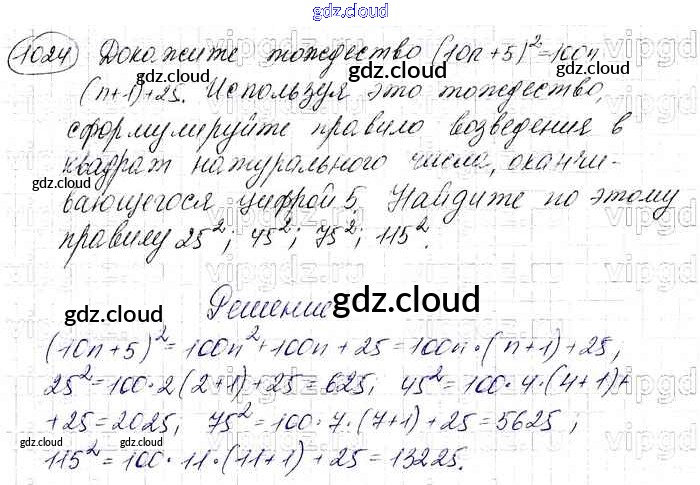 gdz.cloud
1024 Докажите тождество (10n+5)²=100n
(n+1)+25. Используя это тождество,
сформулируйте правило возведения в
квадрат натурального числа, оканчи-
вающегося цифрой 5. Найдите по этому
правилу 25²; 45²; 75²; 115².
Решение
(10n+5)²=100n²+100n+25=100n·(n+1)+25,
25²=100·2(2+1)+25=625; 45²=100·4·(4+1)+
+25=2025; 75²=100·7·(7+1)+25=5625;
115²=100·11·(11+1)+25=13225.